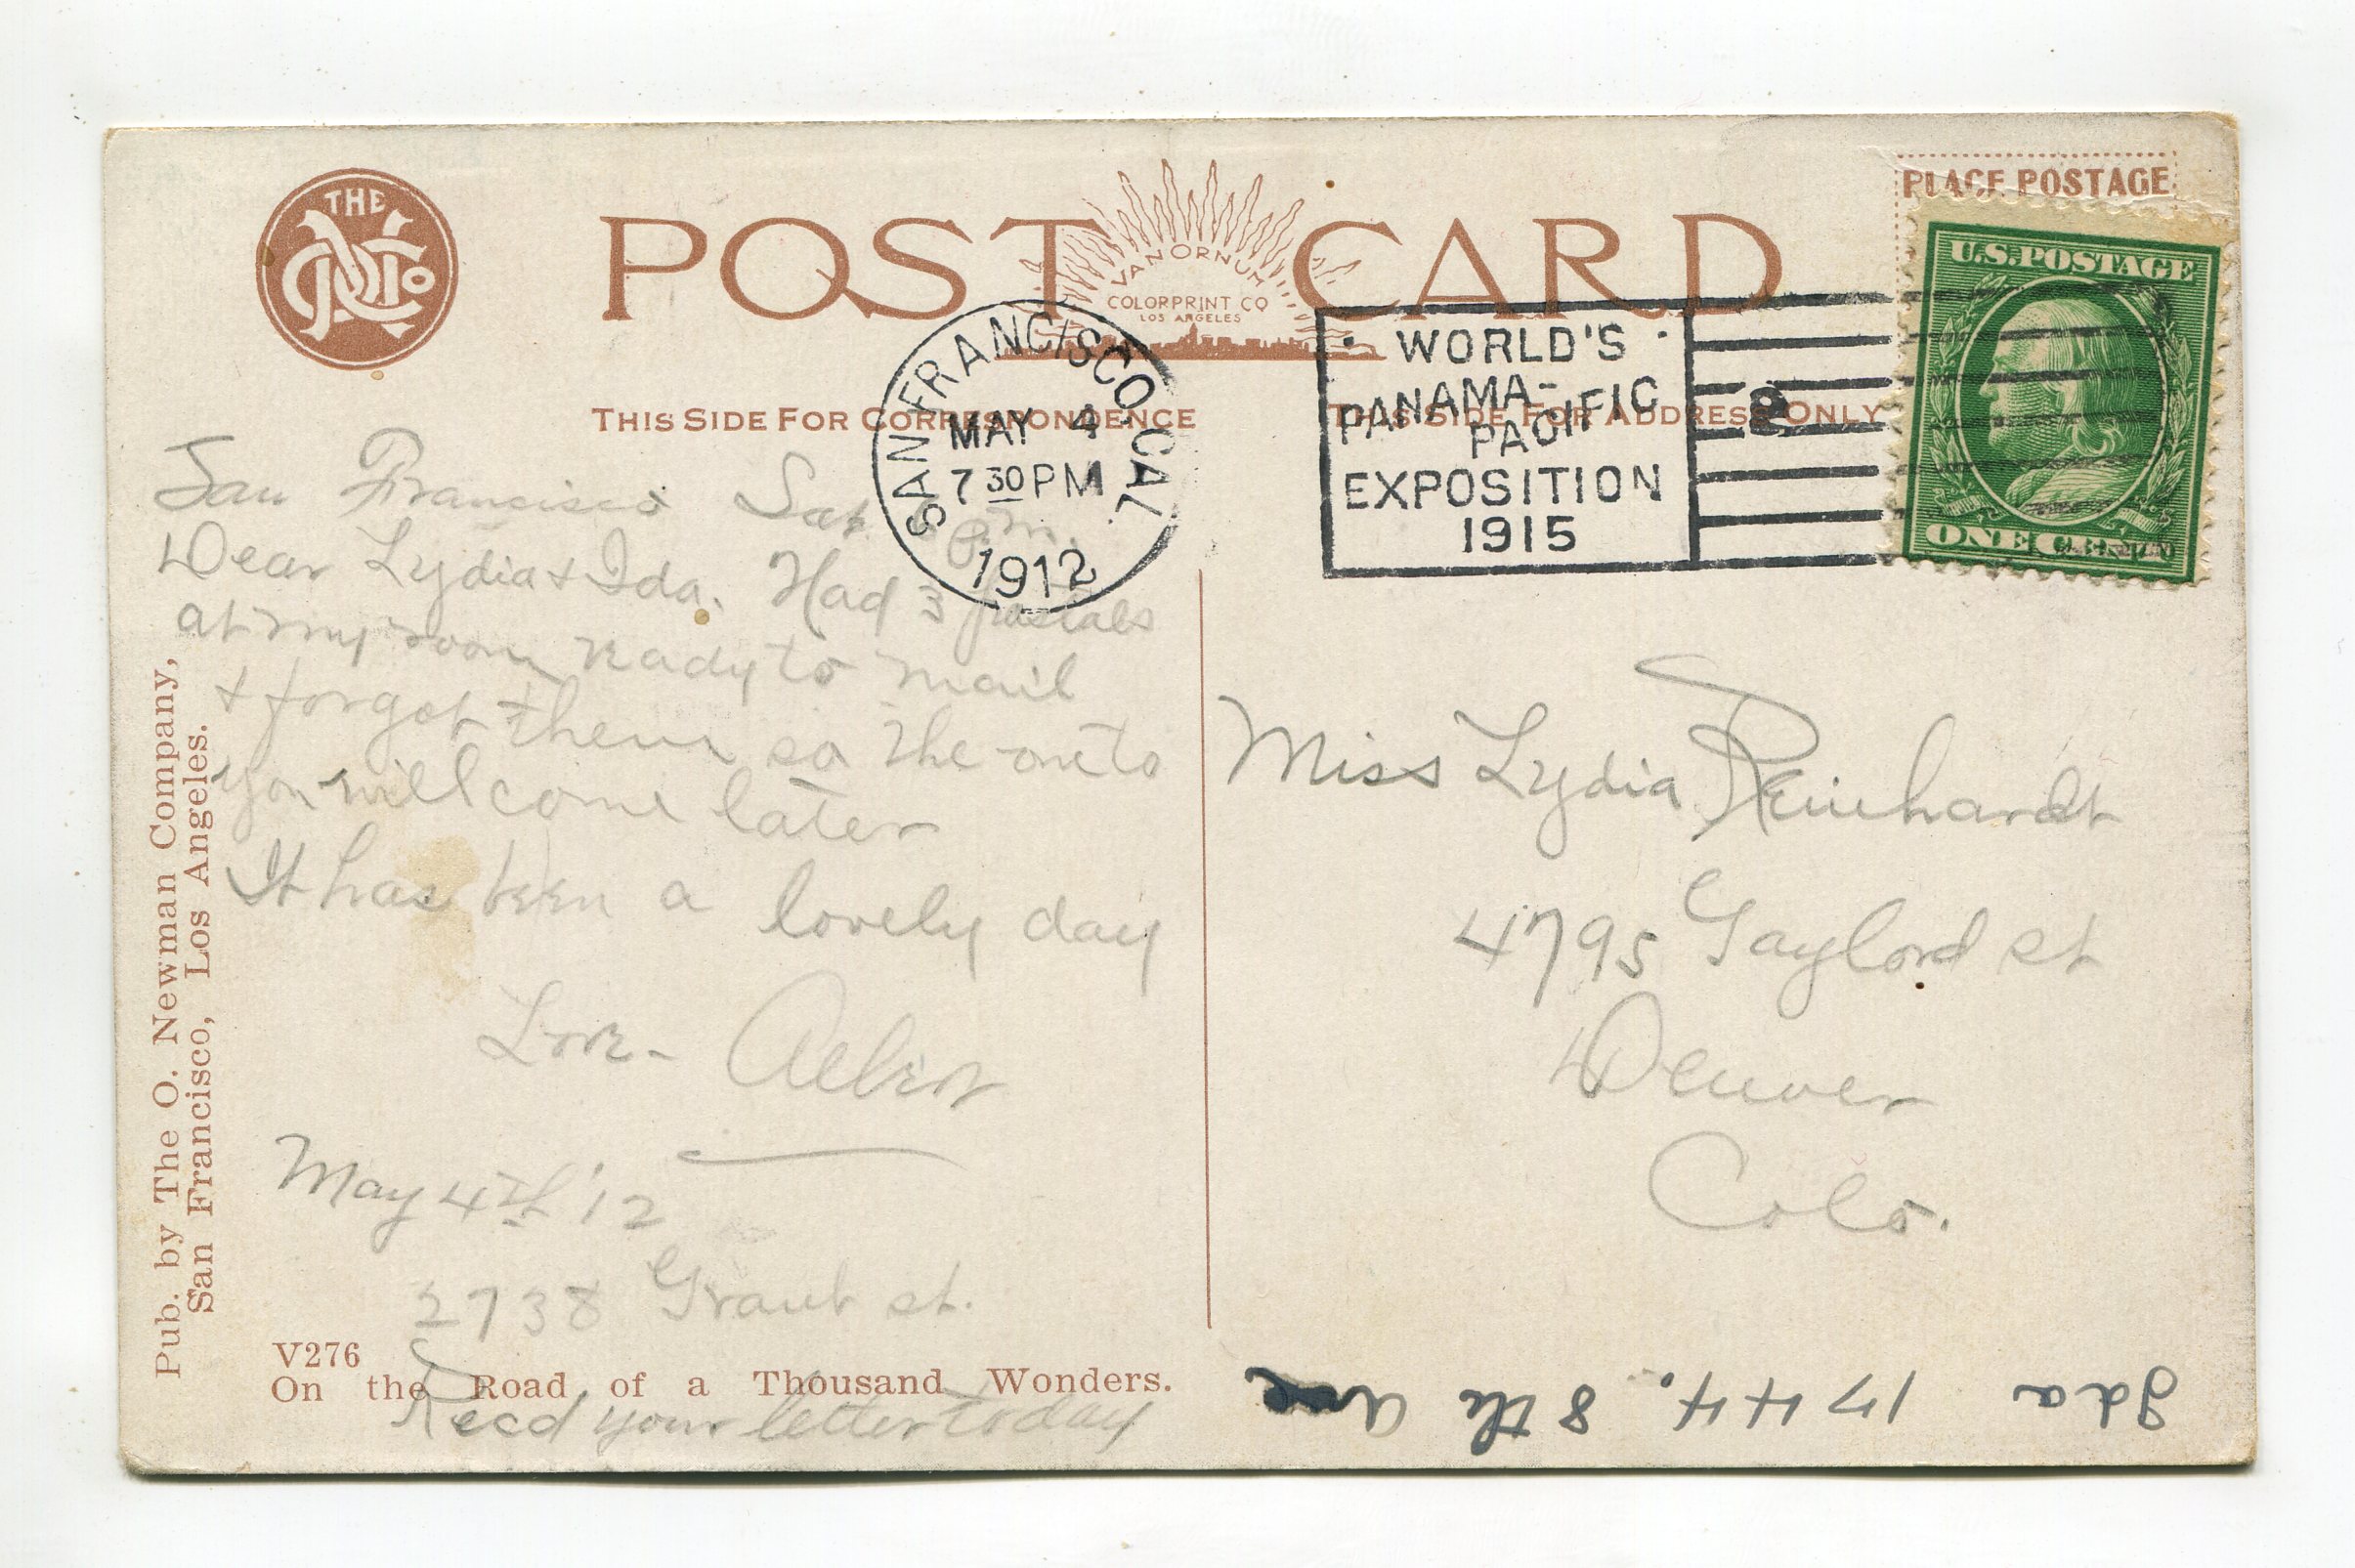 THE
ONCo
POST CARD
VAN ORNUM
COLORPRINT CO
LOS ANGELES
PLACE POSTAGE
U.S. POSTAGE
ONE CENT
THIS SIDE FOR CORRESPONDENCE
THIS SIDE FOR ADDRESS ONLY
SAN FRANCISCO, CAL.
MAY 4
7 30 PM
1912
WORLD'S
PANAMA-
PACIFIC
EXPOSITION
1915
San Francisco Sat P.M.
Dear Lydia + Ida. Had 3 postals
at my room ready to mail
+ forgot them so the one to
you will come later
It has been a lovely day
Love -
May 4th '12
2738 Grant st.
Recd your letter today
Miss Lydia Reinhardt
4795 Gaylord st
Denver
Colo.
Ida 1744. 8th ave
Pub. by The O. Newman Company,
San Francisco, Los Angeles.
V276
On the Road of a Thousand Wonders.